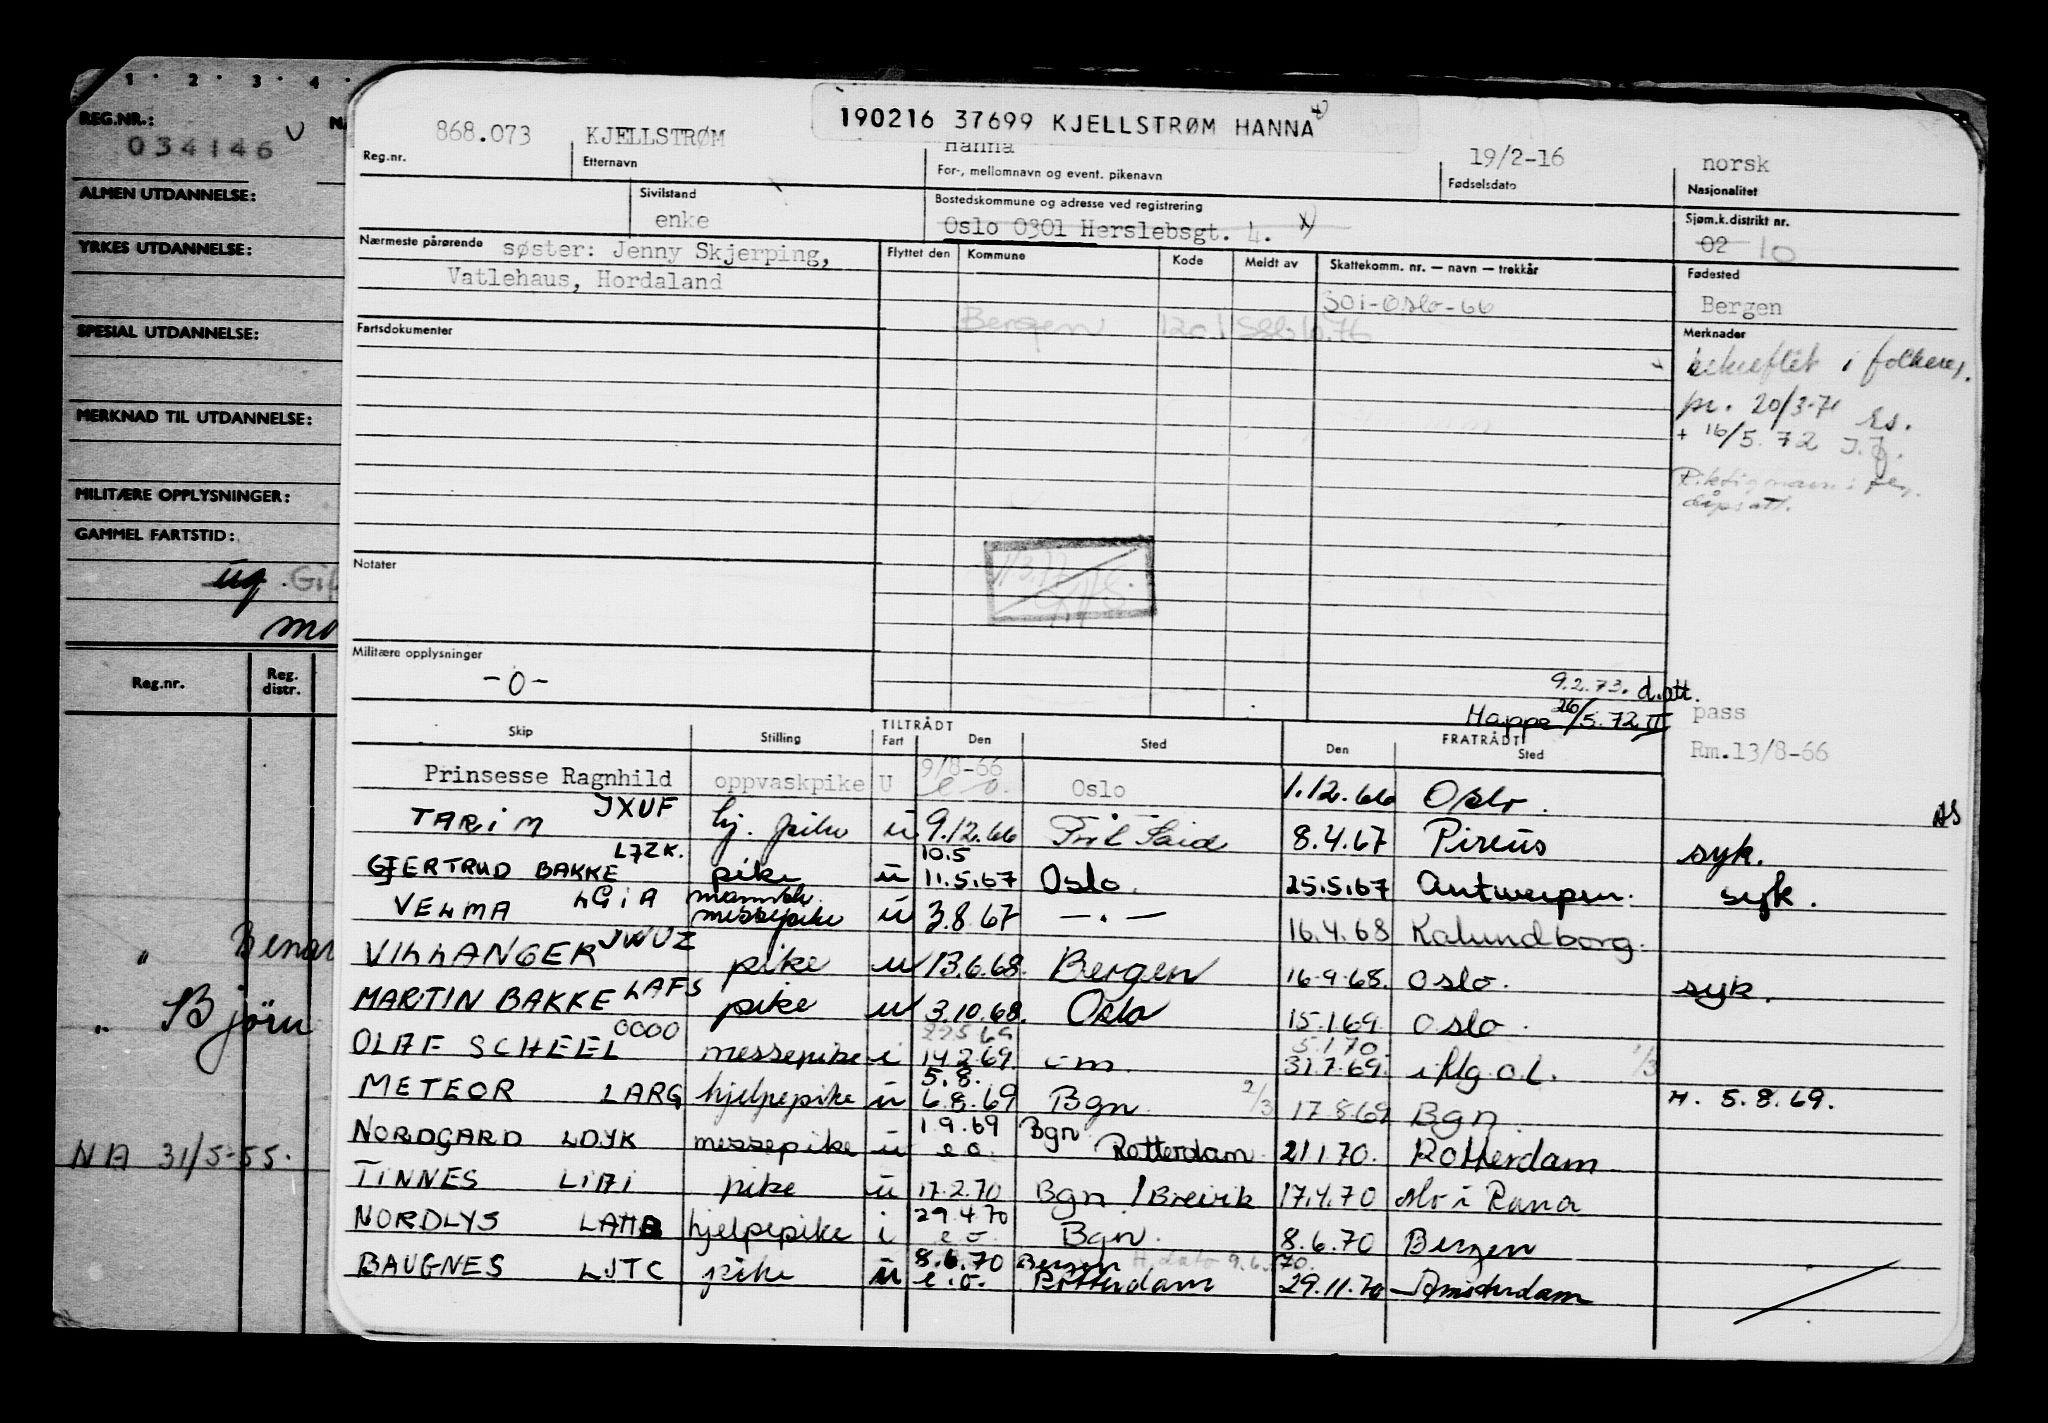 1 · 2 · 3 · 4 ·
REG.NR.:
034146
ALMEN UTDANNELSE:
YRKES UTDANNELSE:
SPESIAL UTDANNELSE:
MERKNAD TIL UTDANNELSE:
MILITÆRE OPPLYSNINGER:
GAMMEL FARTSTID:
ug.
Reg.nr. Reg. distr.
" Benar
" Bjørn
NA 31/5-55.
190216 37699 KJELLSTRØM HANNA
868.073 KJELLSTRØM Hanna 19/2-16 norsk
Reg.nr. Etternavn For-, mellomnavn og event. pikenavn Fødselsdato Nasjonalitet
Sivilstand Bostedskommune og adresse ved registrering Sjøm.k.distrikt nr.
enke Oslo 0301 Herslebsgt. 4. x) 02 10
Nærmeste pårørende søster: Jenny Skjerping,
Vatlehaus, Hordaland
Flyttet den Kommune Kode Meldt av Skattekomm. nr. — navn — trekkår Fødested
301-Oslo-66 Bergen
Bergen 1201
Fartsdokumenter Merknader
bekreftet i folkereg.
pr. 20/3-71 Es.
+ 16/5.72
Riktig navn i flg.
dåpsatt.
Notater
Militære opplysninger
-0-
9.2.73. d.att.
Happe 26/5.72 II
pass
Rm.13/8-66
Skip Stilling TILTRÅDT Fart Den Sted FRATRÅDT Den Sted
Prinsesse Ragnhild oppvaskpike U 9/8-66 e.o. Oslo 1.12.66 Oslo.
TARIM JXUF hj. pike u 9.12.66 Port Said 8.4.67 Pireus syk.
GJERTRUD BAKKE LJZK. pike u 10.5 11.5.67 Oslo. 25.5.67 Antwerpen. syk.
VELMA LGIA messepike u 3.8.67 — . — 16.4.68 Kalundborg.
VILLANGER JWUZ pike u 13.6.68. Bergen 16.9.68. Oslo. syk.
MARTIN BAKKE LAFS pike u 3.10.68. Oslo 15.1.69. Oslo.
OLAF SCHEEL OOOO messepike i 14.2.69. 31.7.69. i flg. o.l.
METEOR LARG hjelpepike u 5.8. 6.8.69 Bgn. 2/3 17.8.69 Bgn. H. 5.8.69.
NORDGARD LDYK messepike u 1.9.69 e.o. Bgn Rotterdam 21.1.70. Rotterdam
TINNES LIBI pike u 17.2.70 Bgn / Brevik 17.4.70 Mo i Rana
NORDLYS LAHB hjelpepike i 29.4.70 e.o. Bgn. 8.6.70 Bergen
BAUGNES LJTC pike u 8.6.70 e.o. Bergen Rotterdam H. dato 9.6.70. 29.11.70 Amsterdam